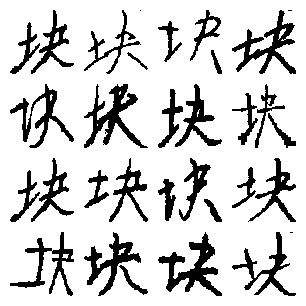 块块块块
块块块块
块块块块
块块块块